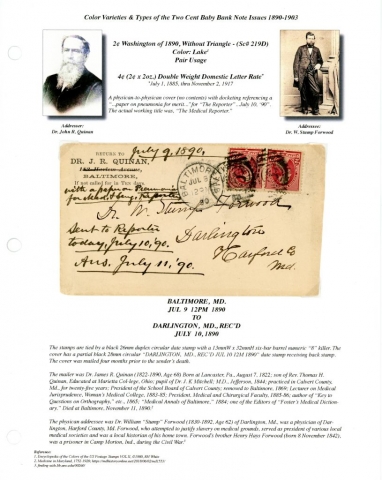 Color Varieties & Types of the Two Cent Baby Bank Note Issues 1890-1903
2c Washington of 1890, Without Triangle - (Sc# 219D)
Color: Lake¹
Pair Usage
4c (2c x 2oz.) Double Weight Domestic Letter Rate²
¹July 1, 1885, thru November 2, 1917
A physician-to-physician cover (no contents) with docketing referencing a
"...paper on pneumonia for merit..." for "The Reporter"...July 10, '90".
The actual working title was, "The Medical Reporter."
Addresser:
Dr. John R. Quinan
Addressee:
Dr. W. Stump Forwood
July 9, 1890,
RETURN TO
DR. J. R. QUINAN,
BALTIMORE,
If not called for in Ten days,
with a paper on Pneumonia
for Med. & Surg. Reporter
BALTIMORE
JUL 9
90
Dr. W. Stump Forwood
Sent to Reporter
today, July 10, '90.
Darlington
Harford Co
Ans. July 11, '90.
Md.
BALTIMORE, MD.
JUL 9 12PM 1890
TO
DARLINGTON, MD., REC'D
JULY 10, 1890
The stamps are tied by a black 26mm duplex circular date stamp with a 13mmW x 32mmH six-bar barrel numeric "8" killer. The
cover has a partial black 28mm circular "DARLINGTON, MD., REC'D JUL 10 12M 1890" date stamp receiving back stamp. The
cover was mailed four months prior to the sender's death.
The mailer was Dr. James R. Quinan (1822-1890, Age 68) Born at Lancaster, Pa., August 7, 1822; son of Rev. Thomas H.
Quinan, Educated at Marietta College, Ohio; pupil of Dr. J. K Mitchell, M.D., Jefferson, 1844; practiced in Calvert County,
Md., for twenty-five years; President of the School Board of Calvert County; removed to Baltimore, 1869; Lecturer on Medical
Jurisprudence, Woman's Medical College, 1883-85; President, Medical and Chirurgical Faculty, 1885-86; author of "Key to
Questions on Orthography," etc., 1865; "Medical Annals of Baltimore," 1884; one of the Editors of "Foster's Medical Diction-
ary." Died at Baltimore, November 11, 1890.³
The physician addressee was Dr. William "Stump" Forwood (1830-1892, Age 62) of Darlington, Md., was a physician of Dar-
lington, Harford County, Md. Forwood, who attempted to justify slavery on medical grounds, served as president of various local
medical societies and was a local historian of his home town. Forwood's brother Henry Hays Forwood (born 8 November 1842),
was a prisoner in Camp Morton, Ind., during the Civil War.³
Reference: